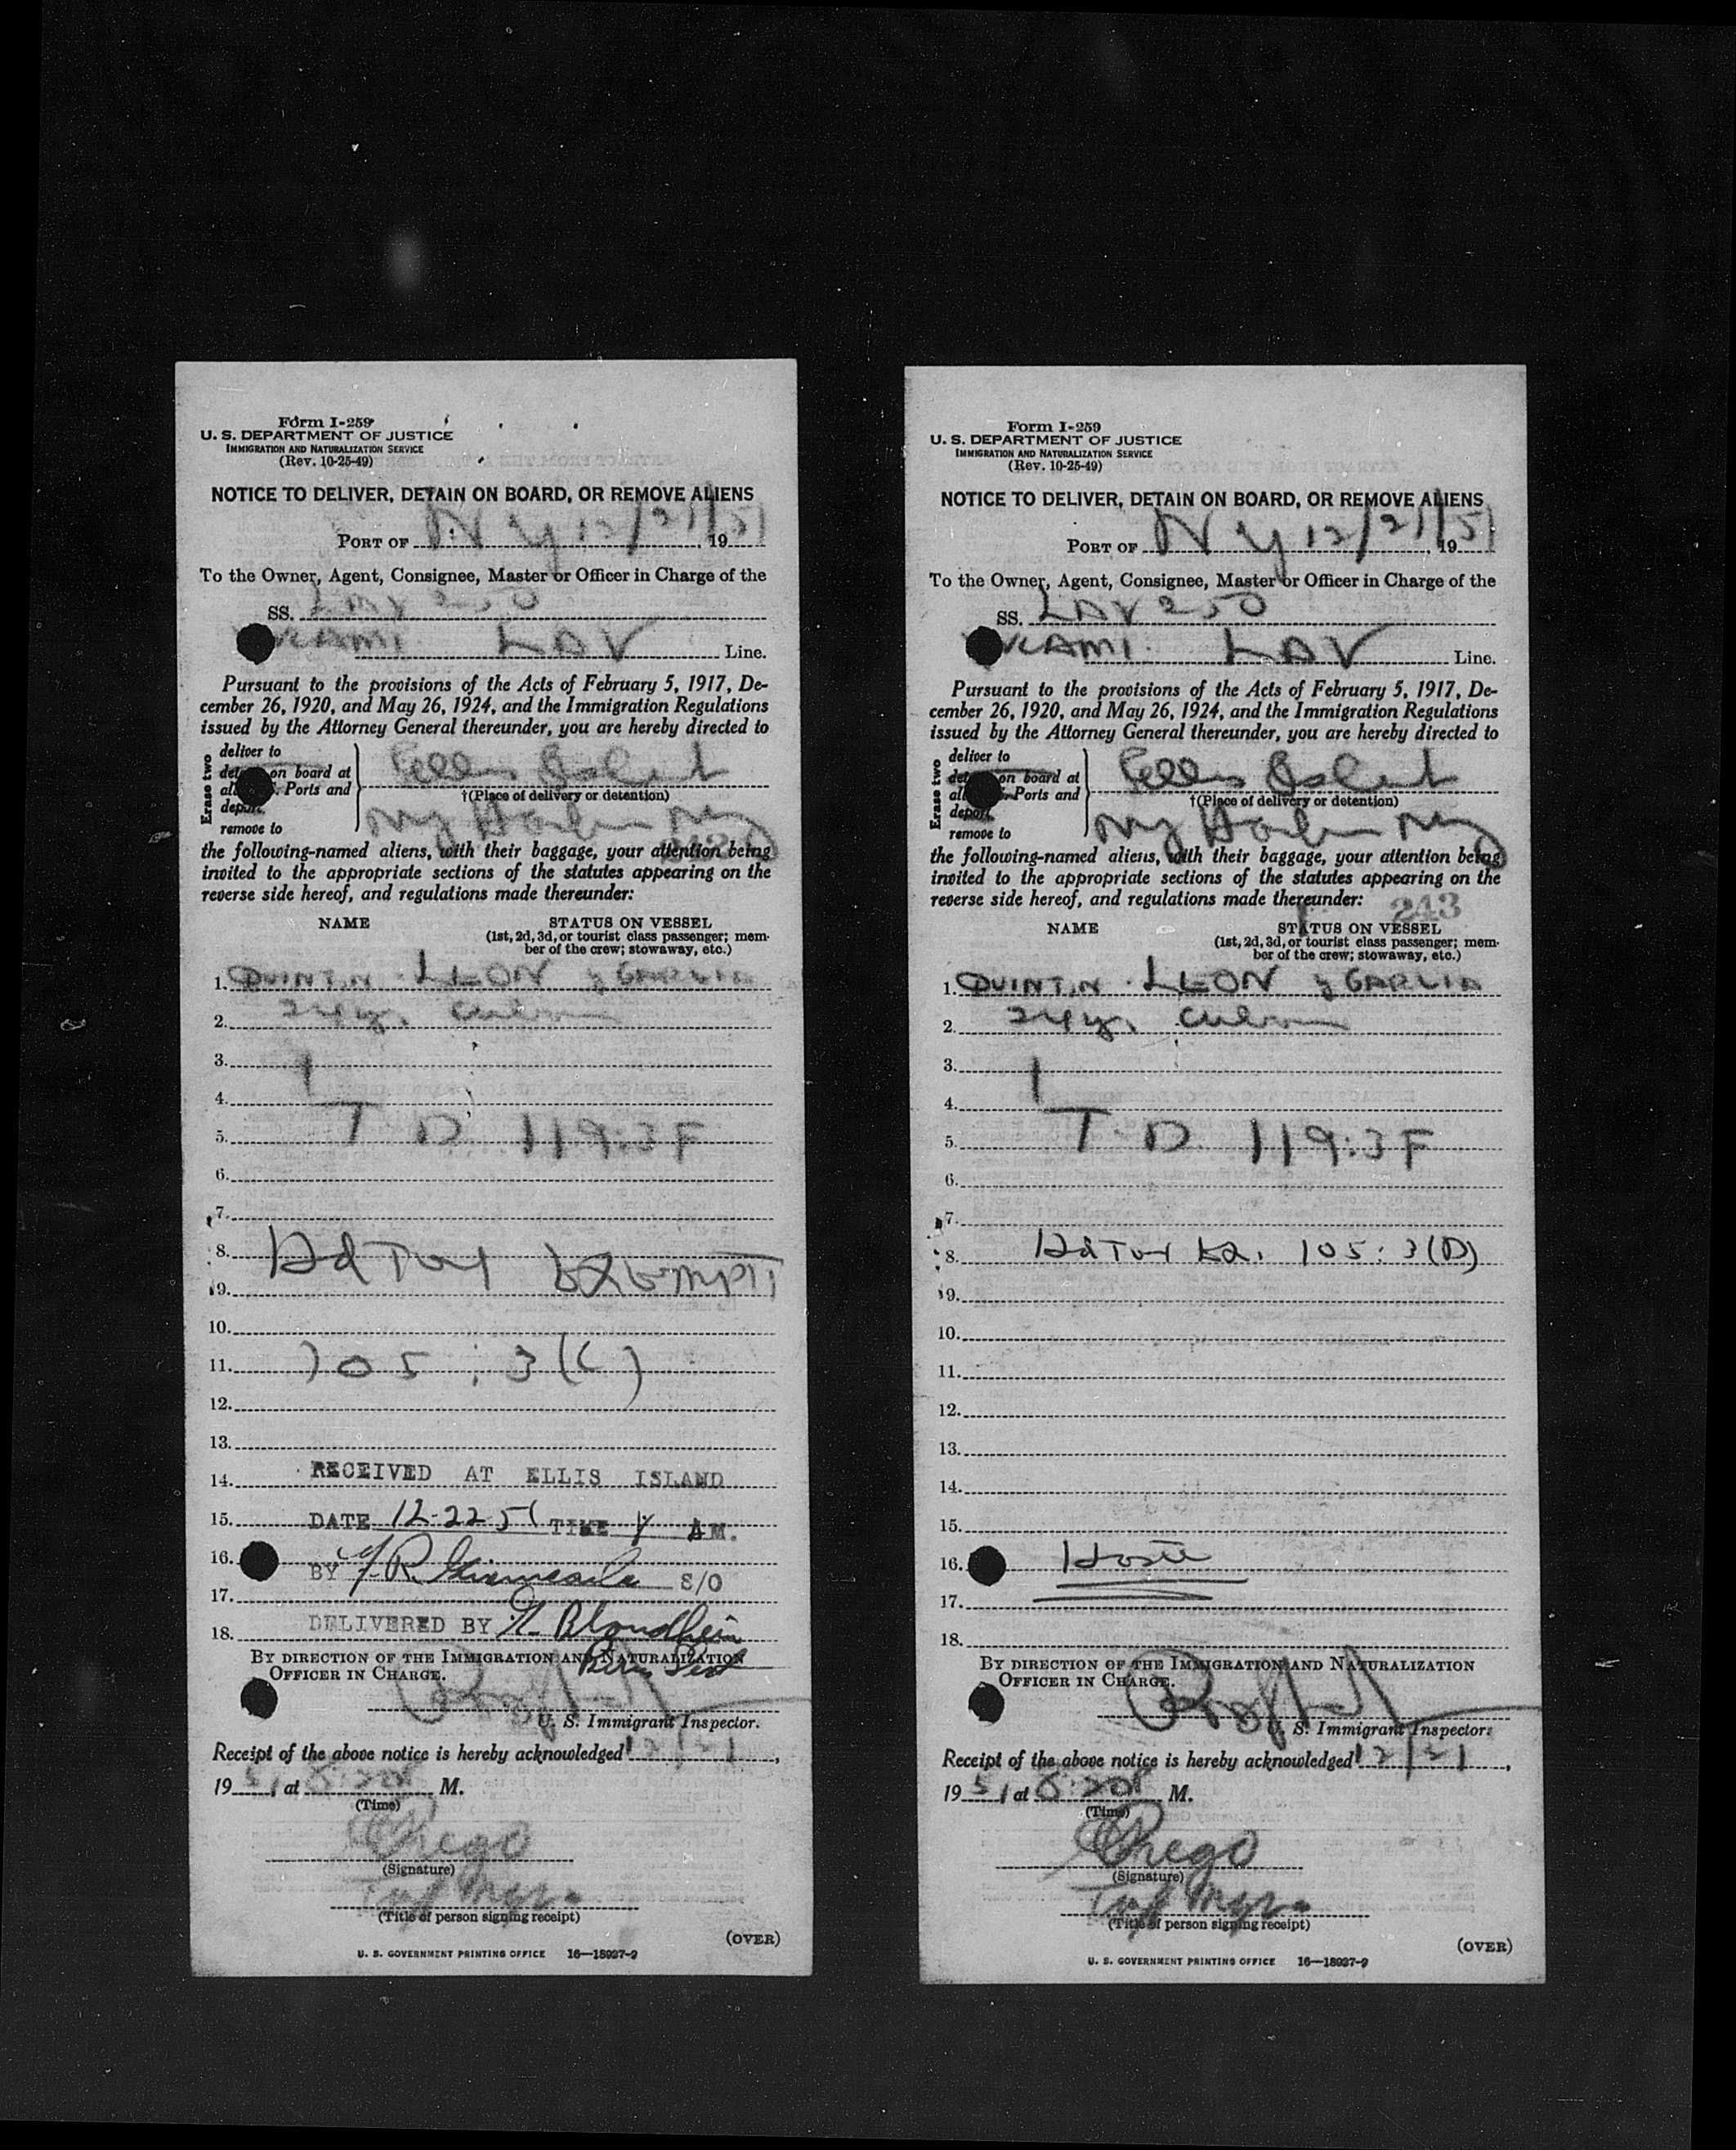 Form I-259
U. S. DEPARTMENT OF JUSTICE
IMMIGRATION AND NATURALIZATION SERVICE
(Rev. 10-25-49)
NOTICE TO DELIVER, DETAIN ON BOARD, OR REMOVE ALIENS
PORT OF N Y 12/21/, 19 51
To the Owner, Agent, Consignee, Master or Officer in Charge of the
SS. LAV 250
LAV Line.
Pursuant to the provisions of the Acts of February 5, 1917, De-
cember 26, 1920, and May 26, 1924, and the Immigration Regulations
issued by the Attorney General thereunder, you are hereby directed to
Erase two
deliver to
on board at
Ports and
deport.
remove to
Ellis Island
†(Place of delivery or detention)
NY Harbor NY
the following-named aliens, with their baggage, your attention being
invited to the appropriate sections of the statutes appearing on the
reverse side hereof, and regulations made thereunder:
NAME STATUS ON VESSEL
(1st, 2d, 3d, or tourist class passenger; mem-
ber of the crew; stowaway, etc.)
1. QUINTIN LEON y GARCIA
2. 24 y. Cuban
3.
4.
5. T D 119:3F
6.
7.
8. Hd Tax EXEMPT
9.
10.
11. 105:3(C)
12.
13.
14. RECEIVED AT ELLIS ISLAND
15. DATE 12-22-51 TIME AM.
16. BY S/O
17.
18. DELIVERED BY Blondheim
BY DIRECTION OF THE IMMIGRATION AND NATURALIZATION
OFFICER IN CHARGE.
U. S. Immigrant Inspector.
Receipt of the above notice is hereby acknowledged 12/21,
19 51 at 8:20P M.
(Time)
(Signature)
(Title of person signing receipt)
(OVER)
U. S. GOVERNMENT PRINTING OFFICE 16—18927-2
Form I-259
U. S. DEPARTMENT OF JUSTICE
IMMIGRATION AND NATURALIZATION SERVICE
(Rev. 10-25-49)
NOTICE TO DELIVER, DETAIN ON BOARD, OR REMOVE ALIENS
PORT OF N Y 12/21/, 19 51
To the Owner, Agent, Consignee, Master or Officer in Charge of the
SS. LAV 250
LAV Line.
Pursuant to the provisions of the Acts of February 5, 1917, De-
cember 26, 1920, and May 26, 1924, and the Immigration Regulations
issued by the Attorney General thereunder, you are hereby directed to
Erase two
deliver to
on board at
Ports and
deport.
remove to
Ellis Island
†(Place of delivery or detention)
NY Harbor NY
the following-named aliens, with their baggage, your attention being
invited to the appropriate sections of the statutes appearing on the
reverse side hereof, and regulations made thereunder:
243
NAME STATUS ON VESSEL
(1st, 2d, 3d, or tourist class passenger; mem-
ber of the crew; stowaway, etc.)
1. QUINTIN LEON y GARCIA
2. 24 y. Cuban
3.
4.
5. T. D. 119:3F
6.
7.
8. Hd Tax Ex. 105:3(D)
9.
10.
11.
12.
13.
14.
15.
16.
17.
18.
BY DIRECTION OF THE IMMIGRATION AND NATURALIZATION
OFFICER IN CHARGE.
U. S. Immigrant Inspector.
Receipt of the above notice is hereby acknowledged 12/21,
19 51 at 8:20P M.
(Time)
(Signature)
(Title of person signing receipt)
(OVER)
U. S. GOVERNMENT PRINTING OFFICE 16—18927-2